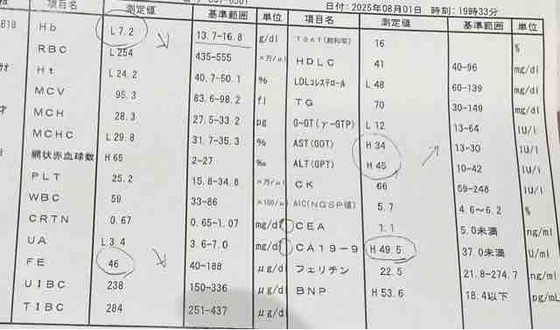 日付: 2025年08月01日 時刻: 19時33分
項目名 測定値 基準範囲 単位 項目名 測定値 基準範囲 単位
Hb L 7.2 13.7-16.8 g/dl 16 %
RBC L 254 435-555 ×万/μl HDLC 41 40-96 mg/dl
Ht L 24.2 40.7-50.1 % LDLコレステロール L 48 60-139 mg/dl
MCV 95.3 83.6-98.2 fl TG 70 30-149 mg/dl
MCH 28.3 27.5-33.2 pg G-GT(γ-GTP) L 12 13-64 IU/l
MCHC L 29.8 31.7-35.3 % AST(GOT) H 34 13-30 IU/l
網状赤血球数 H 65 2-27 ‰ ALT(GPT) H 45 10-42 IU/l
PLT 25.2 15.8-34.8 ×万/μl CK 66 59-248 IU/l
WBC 59 33-86 ×100/μl A1C(NGSP値) 5.7 4.6-6.2 %
CRTN 0.67 0.65-1.07 mg/dl CEA 1.1 5.0未満 ng/ml
UA L 3.4 3.6-7.0 mg/dl CA19-9 H 49.5 37.0未満 U/ml
FE 46 40-188 μg/dl フェリチン 22.5 21.8-274.7 ng/ml
UIBC 238 150-336 μg/dl BNP H 53.6 18.4以下 pg/mL
TIBC 284 251-437 μg/dl